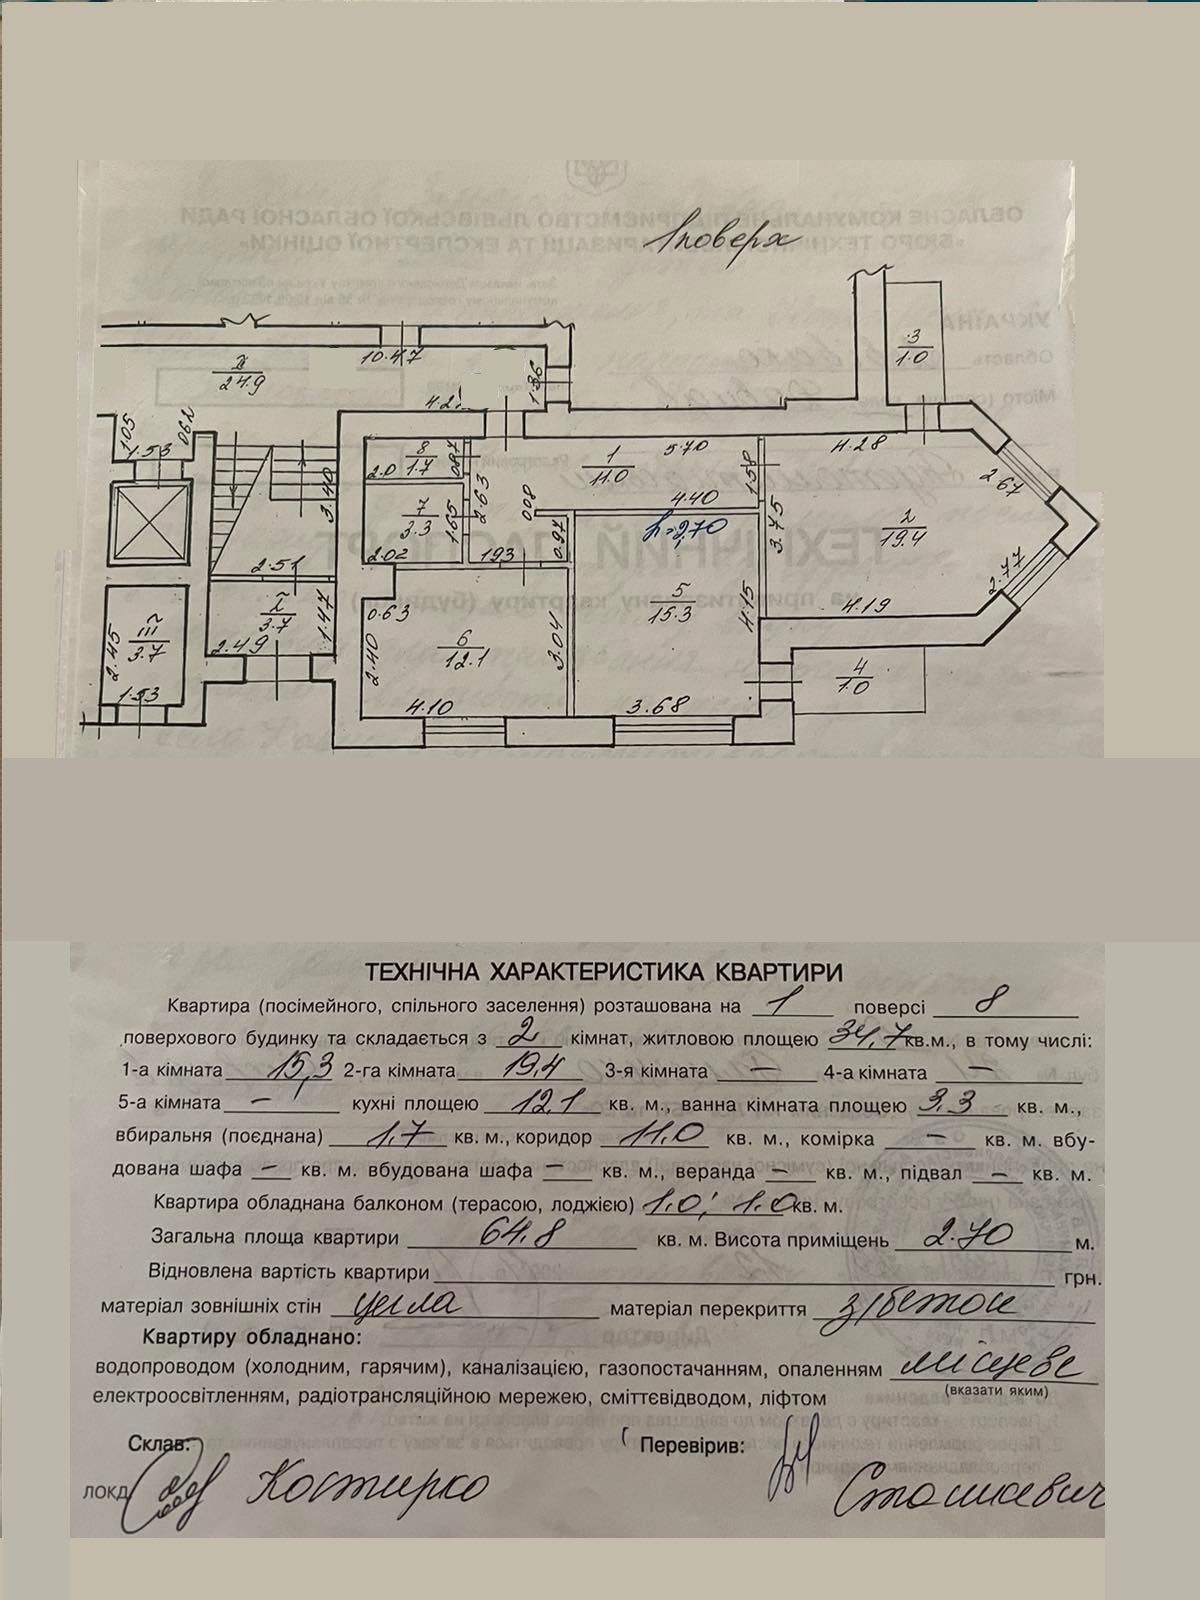 1 поверх
ОБЛАСНЕ КОМУНАЛЬНЕ ПІДПРИЄМСТВО ЛЬВІВСЬКОЇ ОБЛАСНОЇ РАДИ
УКРАЇНА
Область
Місто
ТЕХНІЧНИЙ ПАСПОРТ
3
1.0
24.9
10.47
1.36
4.28
2.67
1.05
1.53
0.62
3.40
2.0
8
1.7
0.87
2.63
1
11.0
5.70
1.58
4.40
h=2,70
3.75
2
19.4
2.77
7
3.3
1.65
2.02
1.93
0.80
0.97
2.51
I
3.7
1.47
2.49
III
3.7
2.45
1.53
0.63
2.40
6
12.1
3.04
4.10
5
15.3
4.15
3.68
4.19
4
1.0
ТЕХНІЧНА ХАРАКТЕРИСТИКА КВАРТИРИ
Квартира (посімейного, спільного заселення) розташована на 1 поверсі 8
поверхового будинку та складається з 2 кімнат, житловою площею 34,7 кв.м., в тому числі:
1-а кімната 15,3 2-га кімната 19,4 3-я кімната — 4-а кімната —
5-а кімната — кухні площею 12,1 кв. м., ванна кімната площею 3,3 кв. м.,
вбиральня (поєднана) 1,7 кв. м., коридор 11,0 кв. м., комірка — кв. м. вбу-
дована шафа — кв. м. вбудована шафа — кв. м., веранда — кв. м., підвал — кв. м.
Квартира обладнана балконом (терасою, лоджією) 1.0; 1.0 кв. м.
Загальна площа квартири 64.8 кв. м. Висота приміщень 2.70 м.
Відновлена вартість квартири грн.
матеріал зовнішніх стін цегла матеріал перекриття з/бетон
Квартиру обладнано:
водопроводом (холодним, гарячим), каналізацією, газопостачанням, опаленням місцеве
(вказати яким)
електроосвітленням, радіотрансляційною мережею, сміттєвідводом, ліфтом
Склав: Перевірив:
Костирко Сташкевич